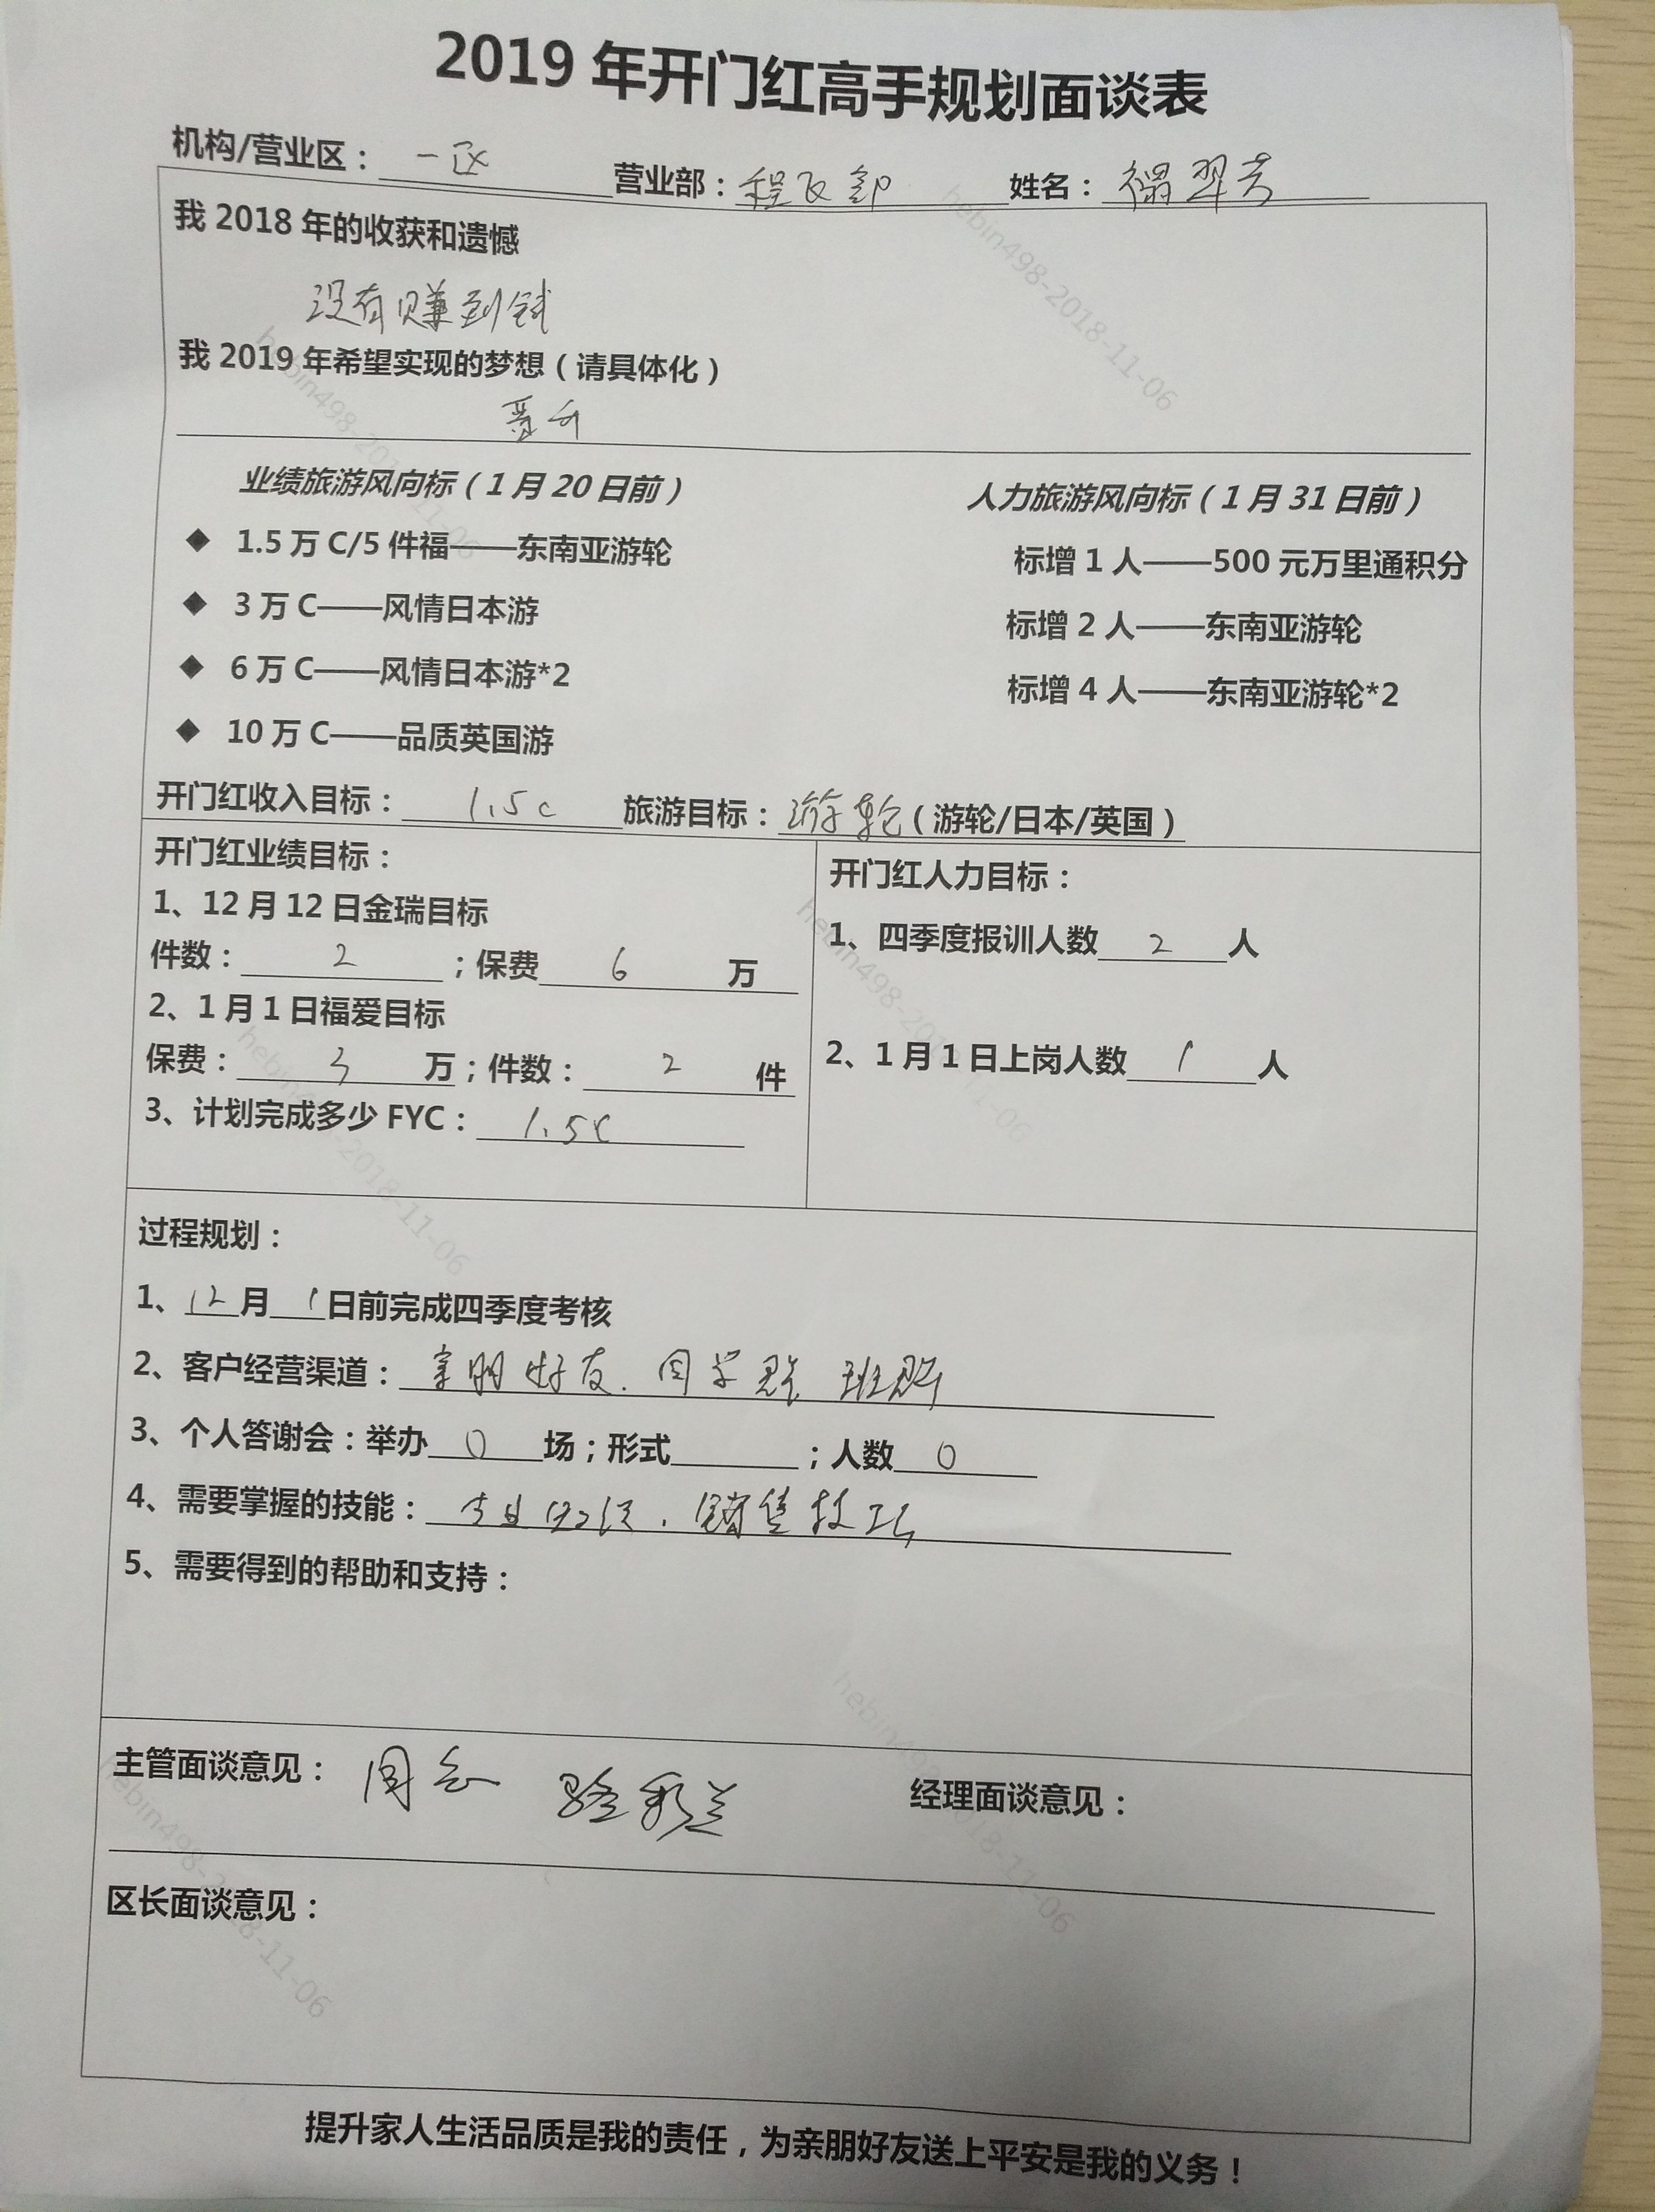 2019 年开门红高手规划面谈表
机构/营业区：一区 营业部：程飞部 姓名：
我 2018 年的收获和遗憾
没有赚到钱
我 2019 年希望实现的梦想（请具体化）
晋升
业绩旅游风向标（1 月 20 日前） 人力旅游风向标（1 月 31 日前）
◆ 1.5 万 C/5 件福——东南亚游轮 标增 1 人——500 元万里通积分
◆ 3 万 C——风情日本游 标增 2 人——东南亚游轮
◆ 6 万 C——风情日本游*2 标增 4 人——东南亚游轮*2
◆ 10 万 C——品质英国游
开门红收入目标：1.5c 旅游目标：游轮（游轮/日本/英国）
开门红业绩目标：
1、12 月 12 日金瑞目标
件数：2；保费 6 万
2、1 月 1 日福爱目标
保费：3 万；件数：2 件
3、计划完成多少 FYC：1.5C
开门红人力目标：
1、四季度报训人数 2 人
2、1 月 1 日上岗人数 1 人
过程规划：
1、12 月 1 日前完成四季度考核
2、客户经营渠道：亲朋好友. 同学群 班群
3、个人答谢会：举办 0 场；形式 ；人数 0
4、需要掌握的技能：专业知识. 销售技巧
5、需要得到的帮助和支持：
主管面谈意见：同意 经理面谈意见：
区长面谈意见：
提升家人生活品质是我的责任，为亲朋好友送上平安是我的义务！
hebin498-2018-11-06
hebin498-2018-11-06
hebin498-2018-11-06
hebin498-2018-11-06
hebin498-2018-11-06
hebin498-2018-11-06